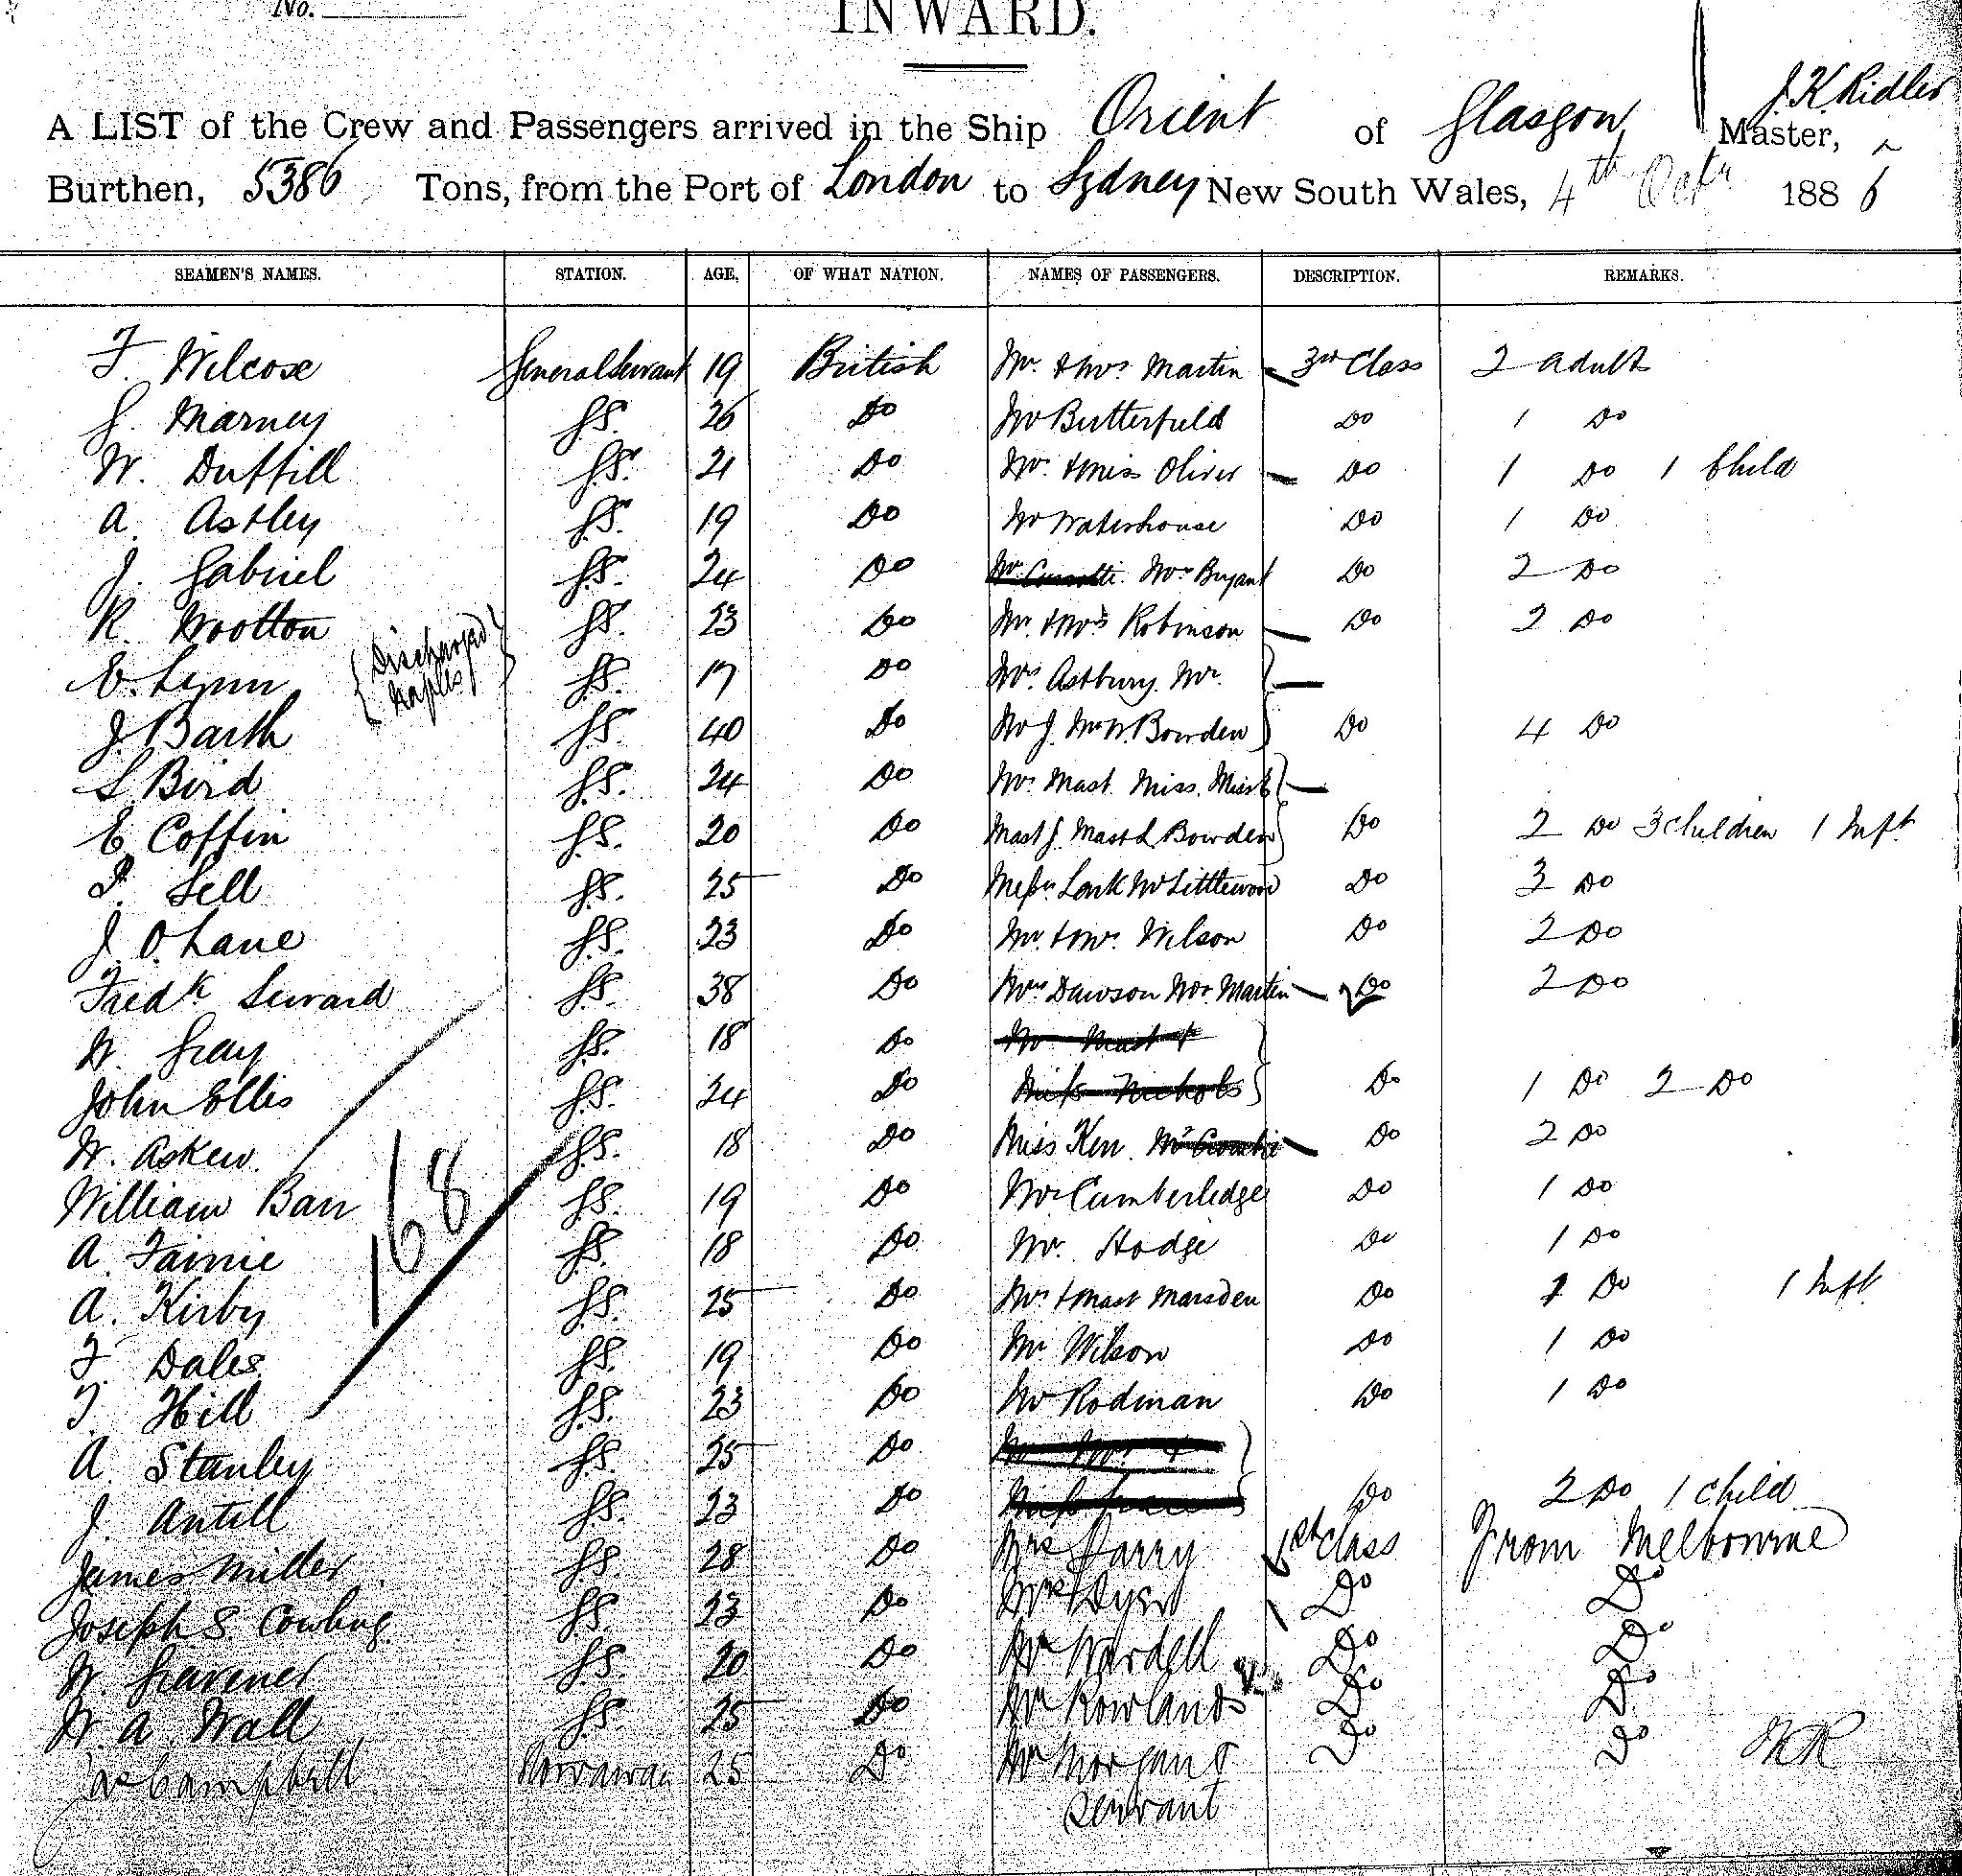 No.
INWARD.
J. K. Ridler
A LIST of the Crew and Passengers arrived in the Ship Orient of Glasgow, Master,
Burthen, 5386 Tons, from the Port of London to Sydney New South Wales, 4th Octr 1886
SEAMEN'S NAMES. STATION. AGE. OF WHAT NATION. NAMES OF PASSENGERS. DESCRIPTION. REMARKS.
F. Wilcose General Servant 19 British Mr. & Mrs. Martin 3rd Class 2 adults
G. Marney G.S. 26 Do Mr Butterfield Do 1 Do
W. Duffill G.S. 21 Do Mrs. & Miss Oliver Do 1 Do 1 Child
A. Astley G.S. 19 Do Mr Waterhouse Do 1 Do
J. Gabriel G.S. 24 Do Mrs Bryant Do 2 Do
R. Wootton G.S. 23 Do Mr. & Mrs Robinson Do 2 Do
{Discharged Naples}
E. Lynn G.S. 17 Do Mrs. Astbury. Mr.
J. Barth G.S. 40 Do Mr J. Mr W. Bowden Do 4 Do
S Bird G.S. 24 Do Mrs. Mast. Miss.
E. Coffin G.S. 20 Do Mast J. Mast L Bowden Do 2 Do 3 children 1 Inft
P. Sell G.S. 25 Do Messrs. Lonk Mr Littlewood Do 3 Do
J. O. Lane G.S. 23 Do Mr. & Mrs. Wilson Do 2 Do
Fredk Seward G.S. 38 Do Mrs Dawson Mrs. Martin Do 2 Do
W. Gray G.S. 18 Do Mr Mast &
John Ellis G.S. 24 Do Miss Nichols Do 1 Do 2 Do
W. Askew G.S. 18 Do Miss Kerr Do 2 Do
168
William Barr G.S. 19 Do Mr Cumberledge Do 1 Do
A. Fairnie G.S. 18 Do Mr. Hodge Do 1 Do
A. Kirby G.S. 25 Do Mrs & Mast Marsden Do 1 Do 1 Inft
F. Dales G.S. 19 Do Mr Wilson Do 1 Do
T. Hill G.S. 23 Do Mr Rodman Do 1 Do
A. Stanley G.S. 25 Do Mr Mrs &
J. Antill G.S. 23 Do Do 2 Do 1 child
James Miller G.S. 28 Do Mrs Parry 1st Class From Melbourne
Joseph S. Cowling G.S. 23 Do Do Do
W. Gravener G.S. 20 Do Mr Wardell Do Do
W. A. Wall G.S. 25 Do Mr Rowlands Do Do
Campbell 25 Do Mr Morgan & Do Do
Servant